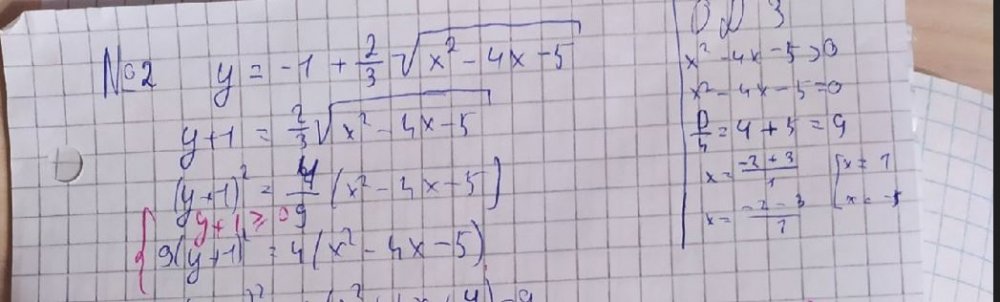 №2 y = -1 + 2/3 √(x² - 4x - 5)
y+1 = 2/3 √(x² - 4x - 5)
(y+1)² = 4/9 (x² - 4x - 5)
y+1 ≥ 0
9(y+1)² = 4(x² - 4x - 5)
ОДЗ
x² - 4x - 5 > 0
x² - 4x - 5 = 0
D/4 = 4 + 5 = 9
x = (-2 + 3)/1
x = 1
x = (-2 - 3)/1
x = -5